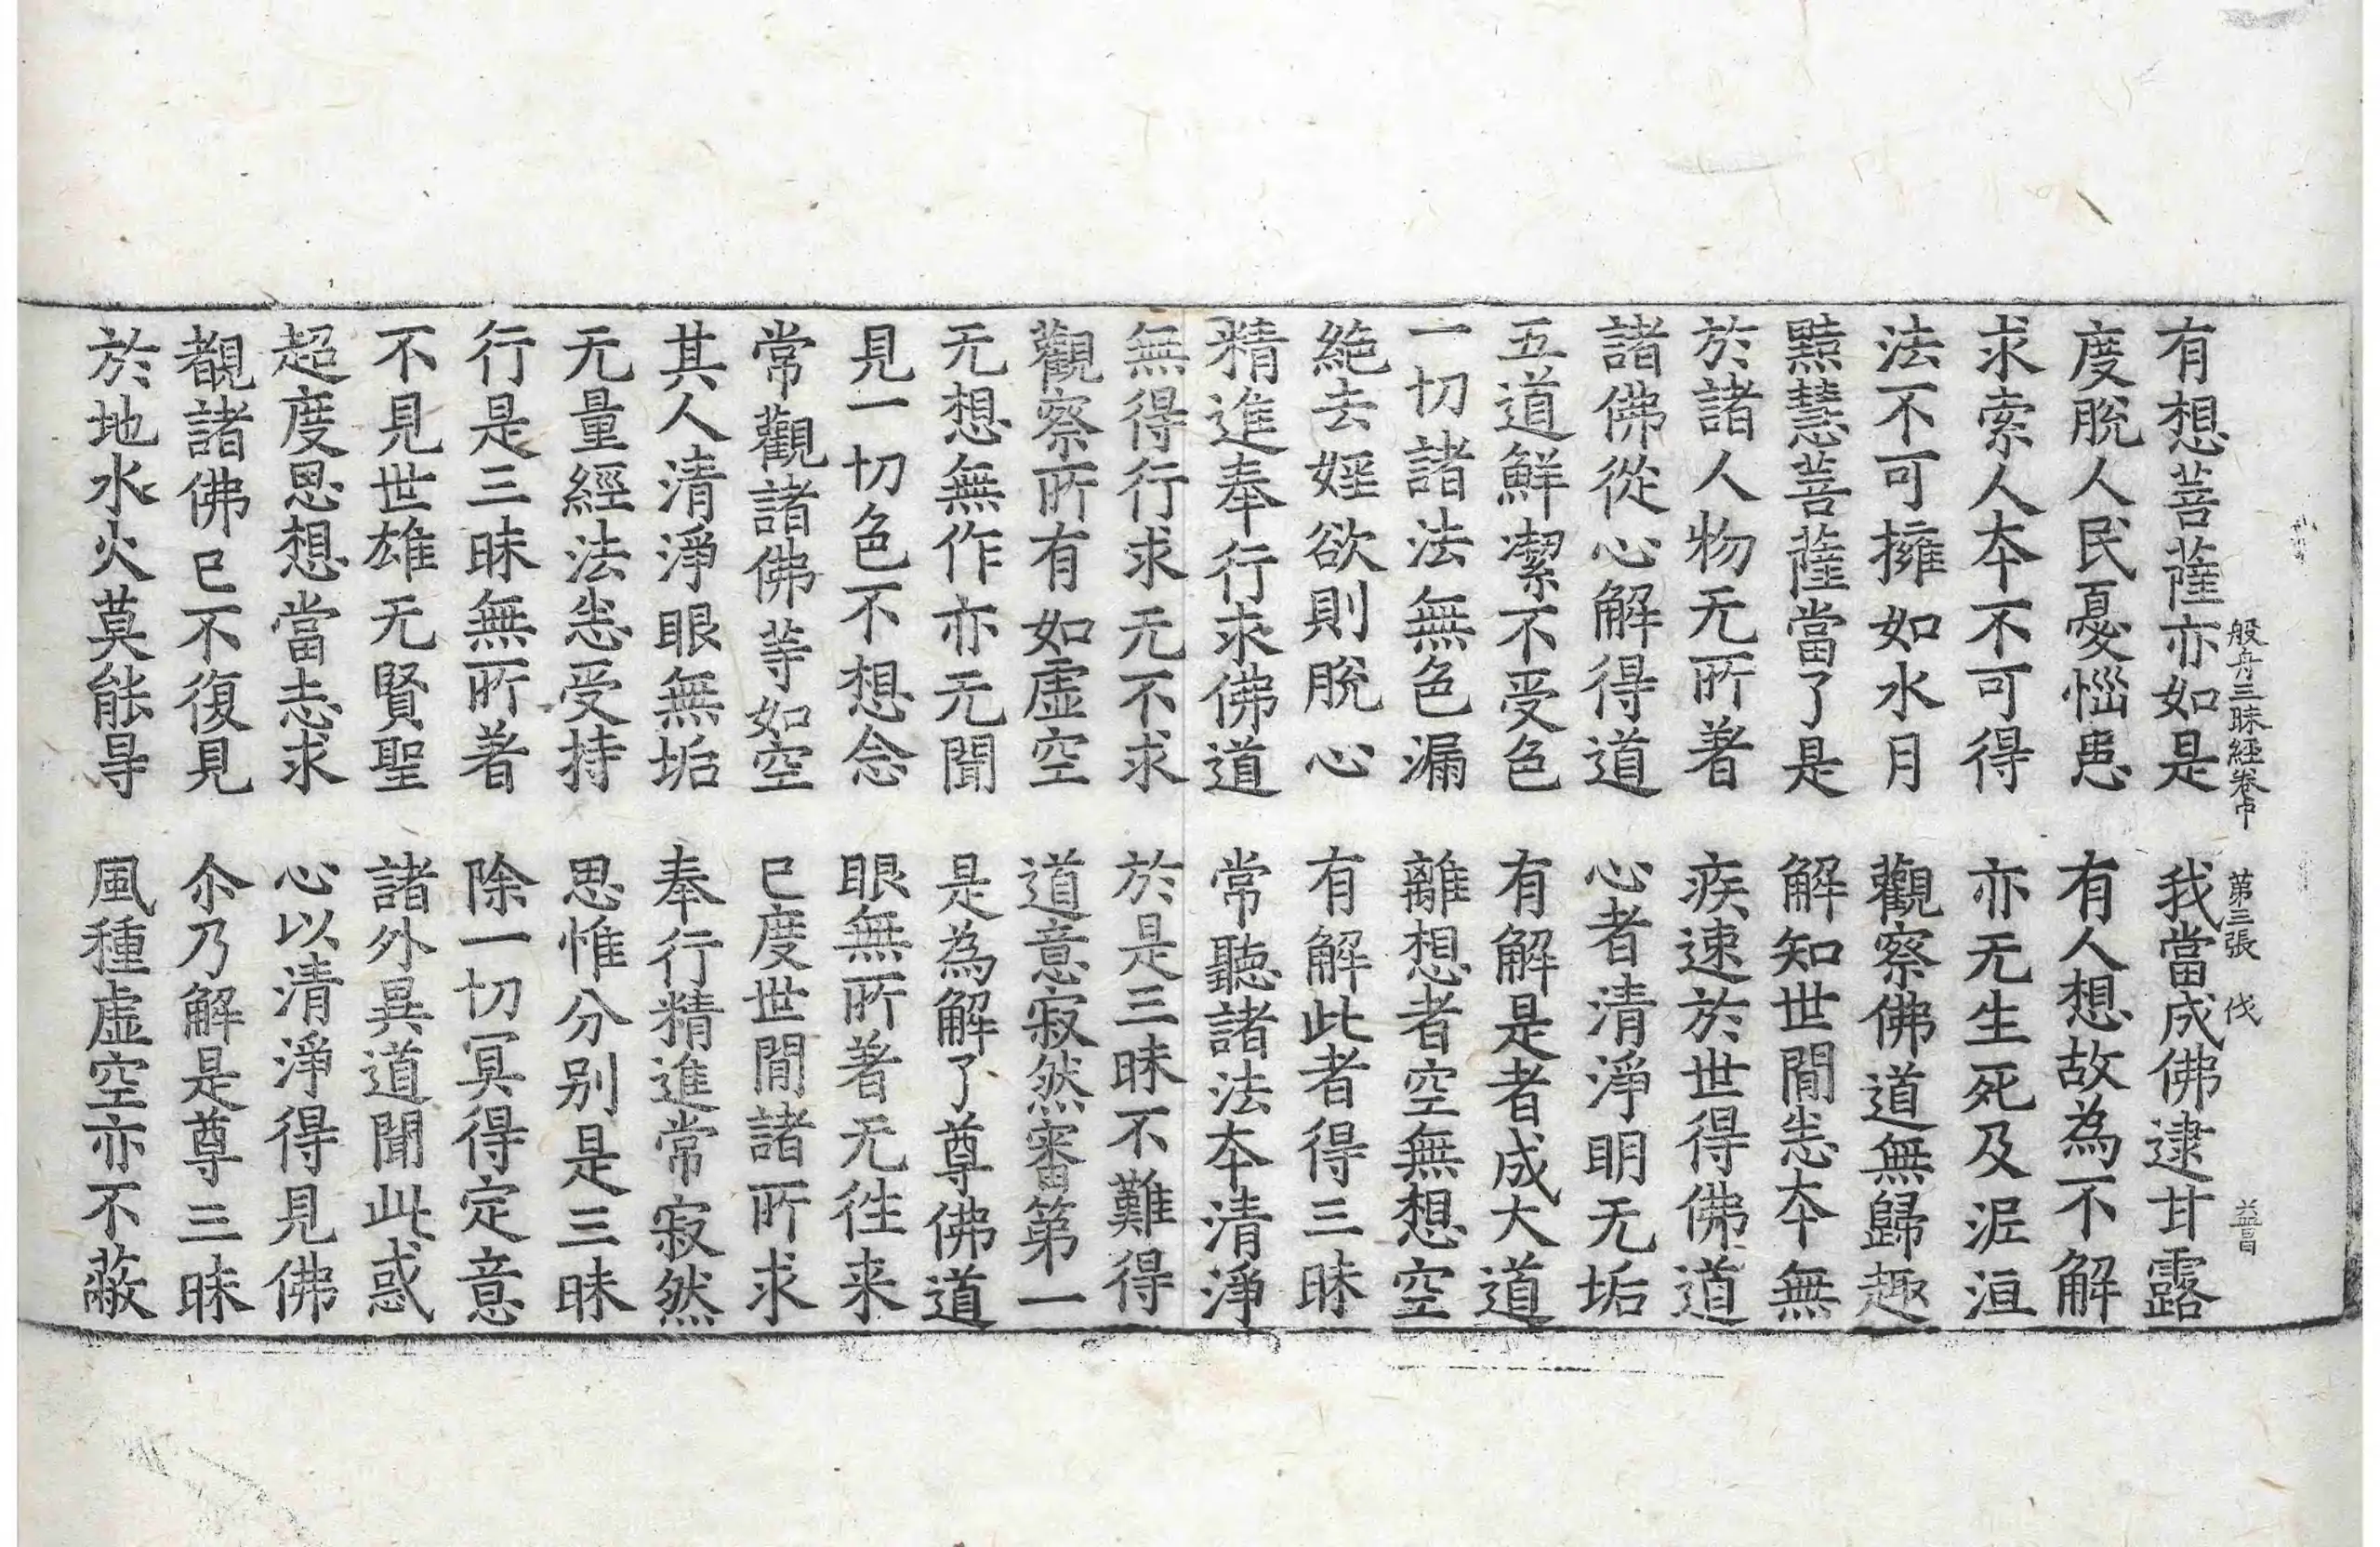 般舟三昧經卷中 第三張 伐
有想菩薩亦如是 我當成佛逮甘露
度脫人民憂惱患 有人想故為不解
求索人夲不可得 亦无生死及泥洹
法不可擁如水月 觀察佛道無歸趣
黠慧菩薩當了是 解知世閒悉夲無
於諸人物无所著 疾速於世得佛道
諸佛從心解得道 心者清淨明无垢
五道鮮潔不受色 有解是者成大道
一切諸法無色漏 離想者空無想空
絶去婬欲則脫心 有解此者得三昧
精進奉行求佛道 常聽諸法夲清淨
無得行求无不求 於是三昧不難得
觀察所有如虛空 道意寂然審第一
无想無作亦无聞 是為解了尊佛道
見一切色不想念 眼無所著无徃来
常觀諸佛等如空 已度世閒諸所求
其人清淨眼無垢 奉行精進常寂然
无量經法悉受持 思惟分別是三昧
行是三昧無所著 除一切冥得定意
不見世雄无賢聖 諸外異道聞此惑
超度思想當志求 心以清淨得見佛
覩諸佛已不復見 尒乃解是尊三昧
於地水火莫能㝵 風種虛空亦不蔽